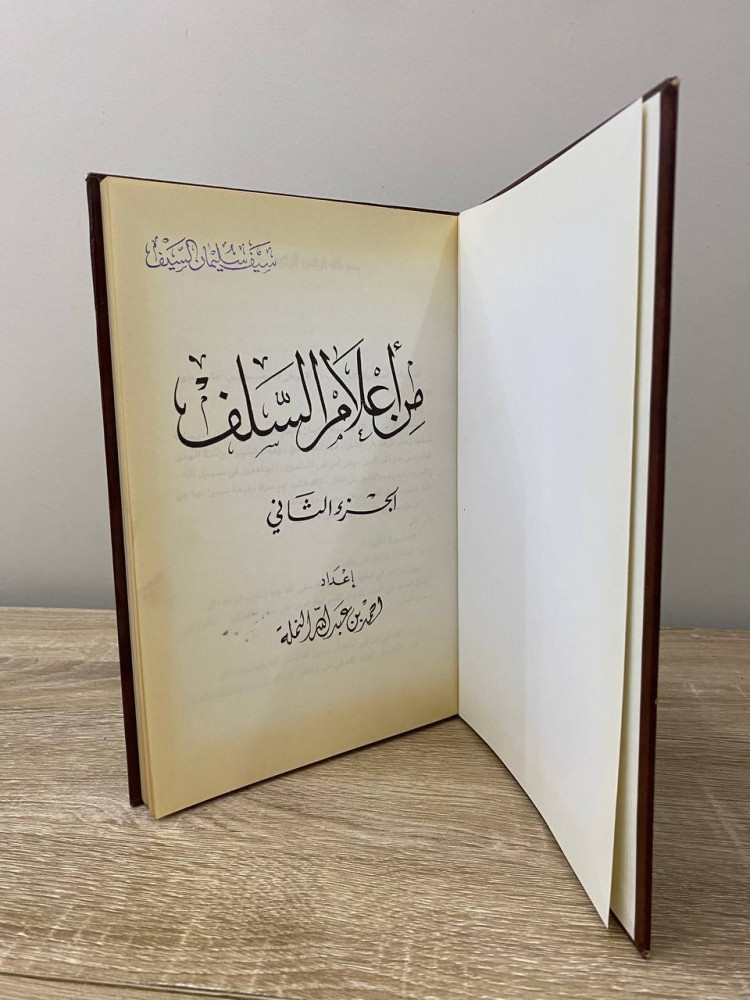 سيف سليمان السيف
من أعلام السلف
الجزء الثاني
إعداد
احمد بن عبد الله النملة